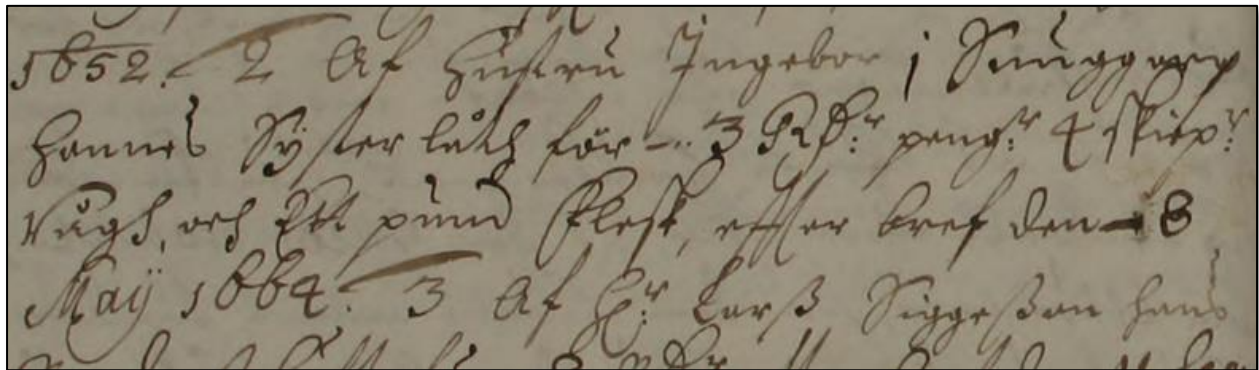 1652. 2 Af Hustru Ingebor j Siuggarp
Hannes Syster låth för 3 Rdr: pengr: 4 skiepr:
Rågh, och Ett pund Flesk, effter bref den 8
May 1664. 3 Af Hr: Larß Siggeßon hans